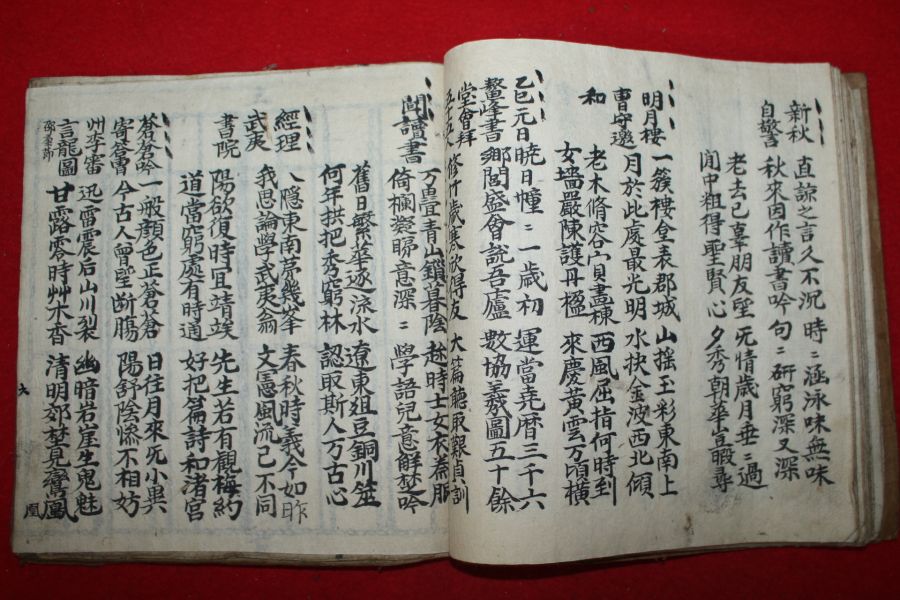 新秋 直諒之言久不沉 時〻涵泳味無味
自警 秋來因作讀書吟 句〻研窮深又深
老去已辜朋友望 死情歲月垂〻過
閒中粗得聖賢心 夕秀朝華豈暇尋
明月樓 一簇樓全表郡城 山搖玉彩東南上
曹守邀 月於此處最光明 水抉金波西北傾
和 老木脩容宀盡棟 西風屈指何時到
女墻嚴陳護丹楹 來慶黃雲万頃橫
乙巳元日 曉日曈〻一歲初 運當堯曆三千六
鰲峰書 鄉閭盛會說吾廬 數協羲圖五十餘
堂會拜 修竹歲寒欣得友 大篇聽取艱貞訓
五十五人
閒讀書 万疊青山鎖暮陰 趁時士女衣
倚欄凝睇意深〻 學語兒意解楚吟
舊日繁華逐流水 遼東俎豆銅川笙
何年拱把秀窮林 認取斯人万古心
經理 八隱東南夢幾峯 春秋時義今如昨
武夷 我思論學武夷翁 文憲風流已不同
書院 陽欲復時宜靖竢 先生若有觀梅約
道當窮處有時通 好把篇詩和渚宮
蒼蒼吟 一般顏色正蒼蒼 日往月來旡小異
寄答曹 今古人曾望斷腸 陽舒陰慘不相妨
州李審 迅雷震后山川裂 幽暗岩崖生鬼魅
言龍圖 甘露零時艸木香 清明郊埜見鸞凰
凰